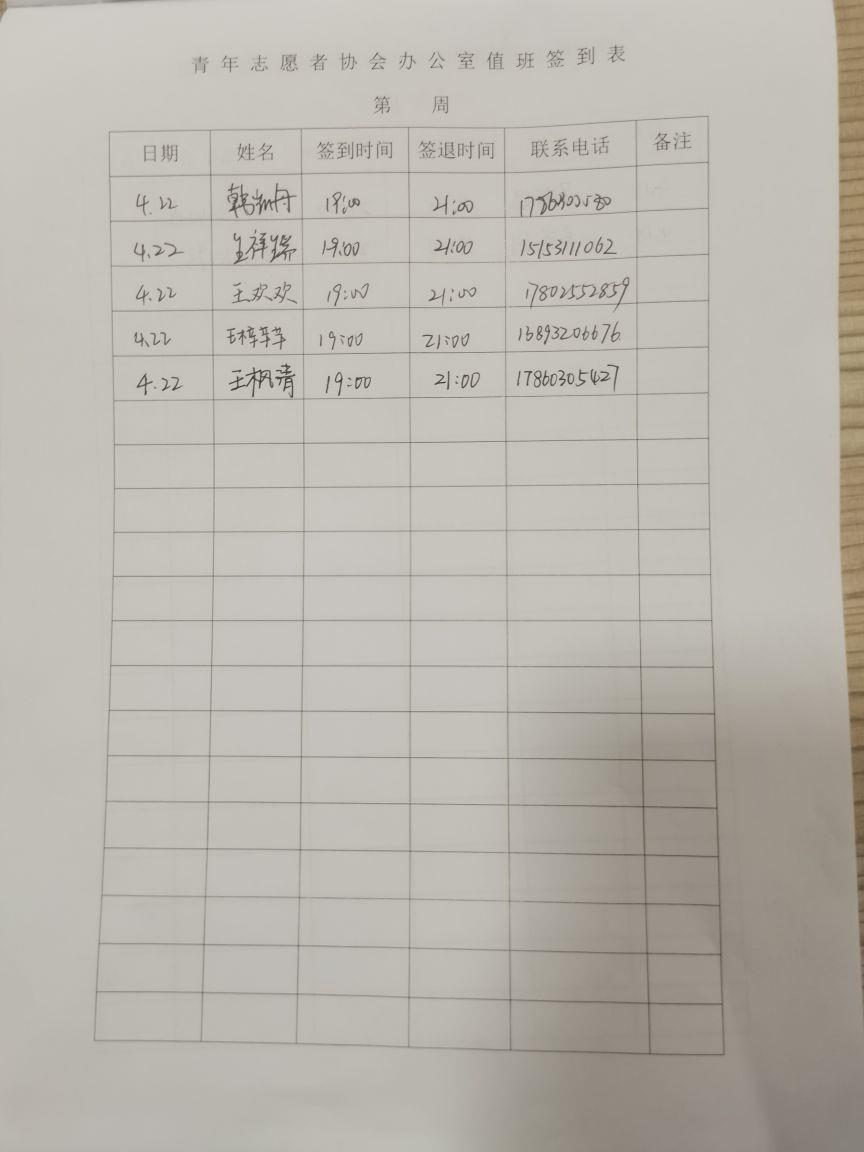 青年志愿者协会办公室值班签到表
第 周
日期 姓名 签到时间 签退时间 联系电话 备注
4.22 19:00 21:00
4.22 19:00 21:00 15153111062
4.22 王欢欢 19:00 21:00 17802552859
4.22 19:00 21:00
4.22 王枫清 19:00 21:00 17860305427